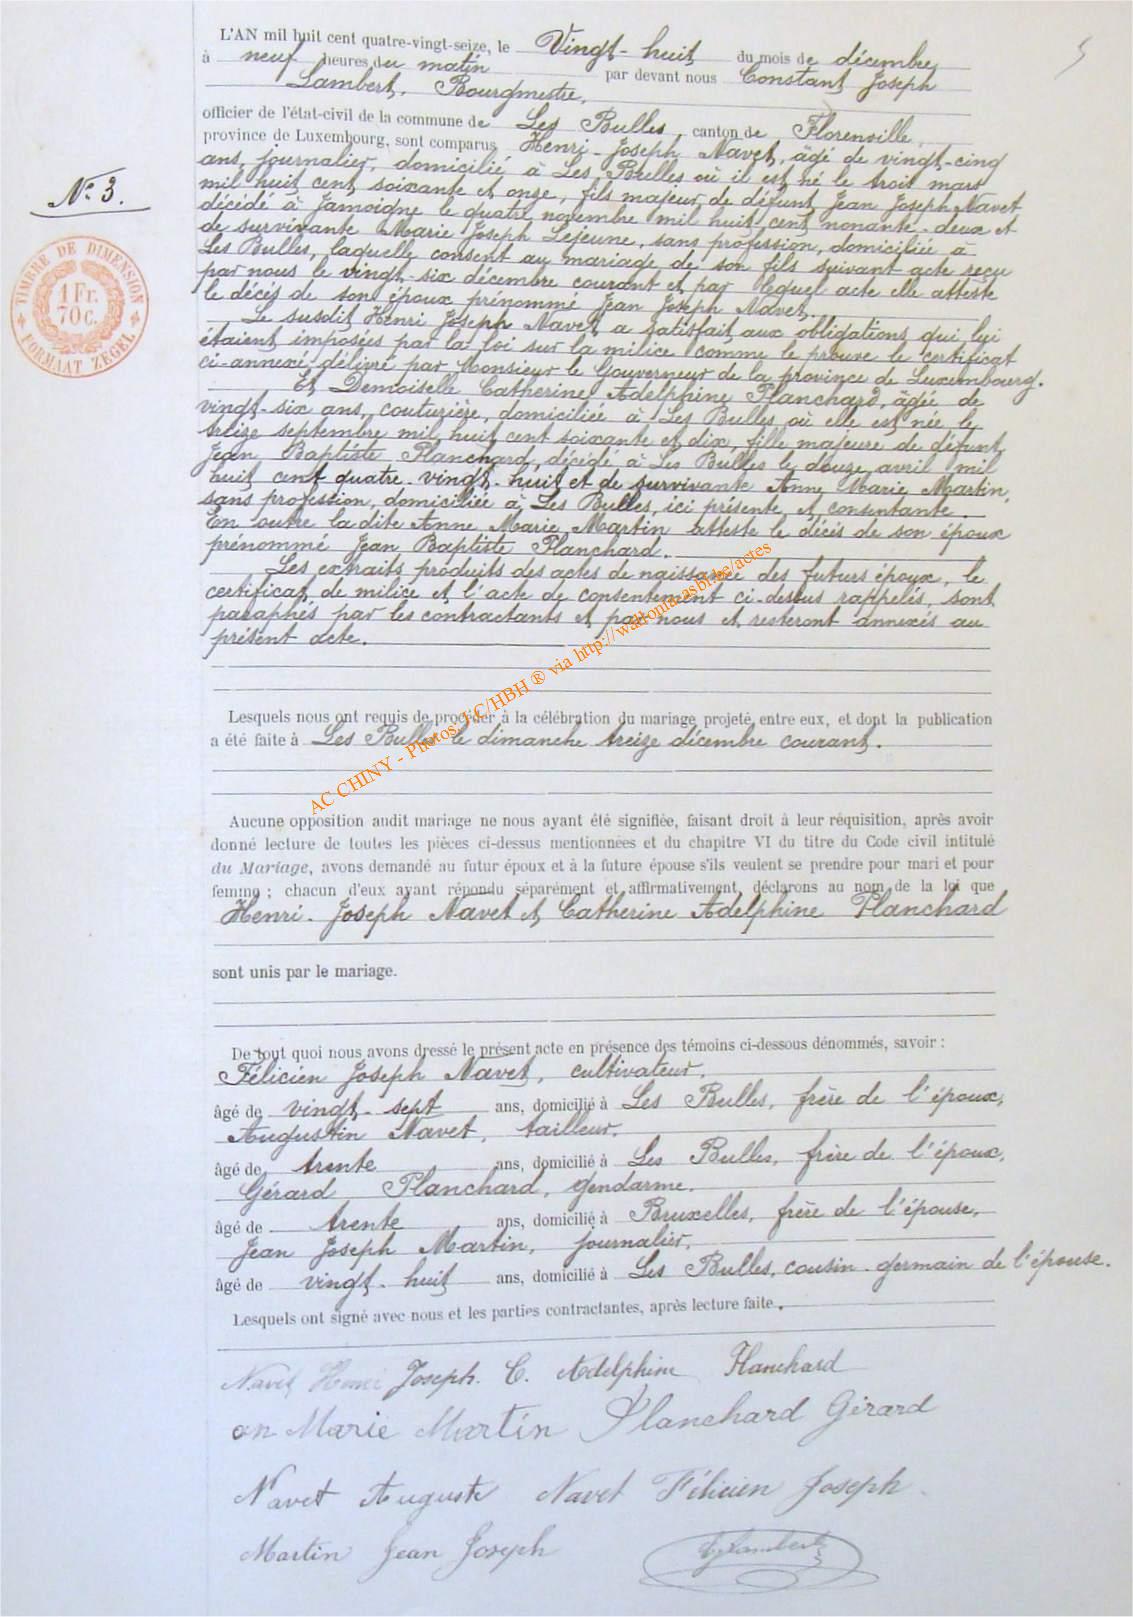 L'AN mil huit cent quatre-vingt-seize, le Vingt-huit du mois de décembre,
à neuf heures du matin par devant nous Constant Joseph
Lambert, Bourgmestre,
officier de l'état-civil de la commune de Les Bulles, canton de Florenville,
province de Luxembourg, sont comparus Henri-Joseph Navet, âgé de vingt-cinq
ans, journalier, domicilié à Les Bulles où il est né le trois mars
mil huit cent soixante et onze, fils majeur de défunt Jean Joseph Navet
décédé à Jamoigne le quatre novembre mil huit cent nonante-deux et
de survivante Marie Joseph Lejeune, sans profession, domiciliée à
Les Bulles, laquelle consent au mariage de son fils suivant acte reçu
par nous le vingt-six décembre courant et par lequel acte elle atteste
le décès de son époux prénommé Jean Joseph Navet.
Le susdit Henri Joseph Navet a satisfait aux obligations qui lui
étaient imposées par la loi sur la milice comme le prouve le certificat
ci-annexé, délivré par Monsieur le Gouverneur de la province de Luxembourg.
Et Demoiselle Catherine Adelphine Planchard, âgée de
vingt-six ans, couturière, domiciliée à Les Bulles où elle est née le
treize septembre mil huit cent soixante et dix, fille majeure de défunt
Jean Baptiste Planchard, décédé à Les Bulles le douze avril mil
huit cent quatre-vingt-huit et de survivante Anne Marie Martin,
sans profession, domiciliée à Les Bulles, ici présente et consentante.
En outre la dite Anne Marie Martin atteste le décès de son époux
prénommé Jean Baptiste Planchard.
Les extraits produits des actes de naissance des futurs époux, le
certificat de milice et l'acte de consentement ci-dessus rappelés, sont
paraphés par les contractants et par nous et resteront annexés au
présent acte.
N° 3.
TIMBRE DE DIMENSION
1 Fr.
70 C.
FORMAAT ZEGEL
AC CHINY - Photos: LC/HBH ® via http://wallonia-asbl.be/actes
Lesquels nous ont requis de procéder à la célébration du mariage projeté entre eux, et dont la publication
a été faite à Les Bulles le dimanche treize décembre courant.
Aucune opposition audit mariage ne nous ayant été signifiée, faisant droit à leur réquisition, après avoir
donné lecture de toutes les pièces ci-dessus mentionnées et du chapitre VI du titre du Code civil intitulé
du Mariage, avons demandé au futur époux et à la future épouse s'ils veulent se prendre pour mari et pour
femme ; chacun d'eux ayant répondu séparément et affirmativement, déclarons au nom de la loi que
Henri-Joseph Navet et Catherine Adelphine Planchard
sont unis par le mariage.
De tout quoi nous avons dressé le présent acte en présence des témoins ci-dessous dénommés, savoir :
Félicien Joseph Navet, cultivateur,
âgé de vingt-sept ans, domicilié à Les Bulles, frère de l'époux,
Augustin Navet, tailleur,
âgé de trente ans, domicilié à Les Bulles, frère de l'époux,
Gérard Planchard, gendarme,
âgé de trente ans, domicilié à Bruxelles, frère de l'épouse,
Jean Joseph Martin, journalier,
âgé de vingt-huit ans, domicilié à Les Bulles, cousin-germain de l'épouse.
Lesquels ont signé avec nous et les parties contractantes, après lecture faite.
Navet Henri Joseph. C. Adelphine Planchard
an Marie Martin Planchard Gérard
Navet Auguste Navet Félicien Joseph
Martin Jean Joseph